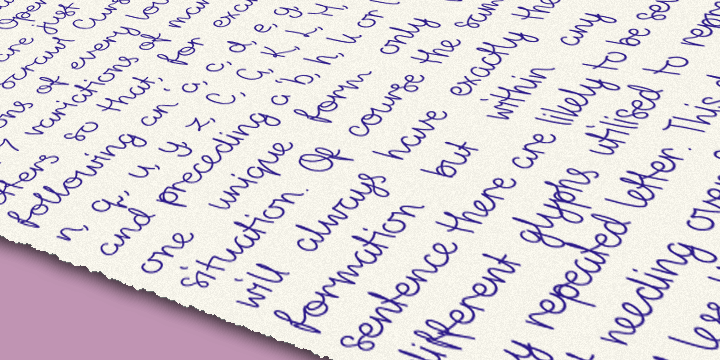 Open
are just
scrawl Curs
ons of every low
7 variations of man
tters so that, for exa
following an a, c, d, e, g,
n, q, u, y, z, C, G, K, L, H,
and preceding a b, h, k or l
one unique form only
situation. Of course the sam
will always have exactly the
formation but within any
sentence there are likely to be se
different glyphs utilised to rep
y repeated letter. This
needing over
less